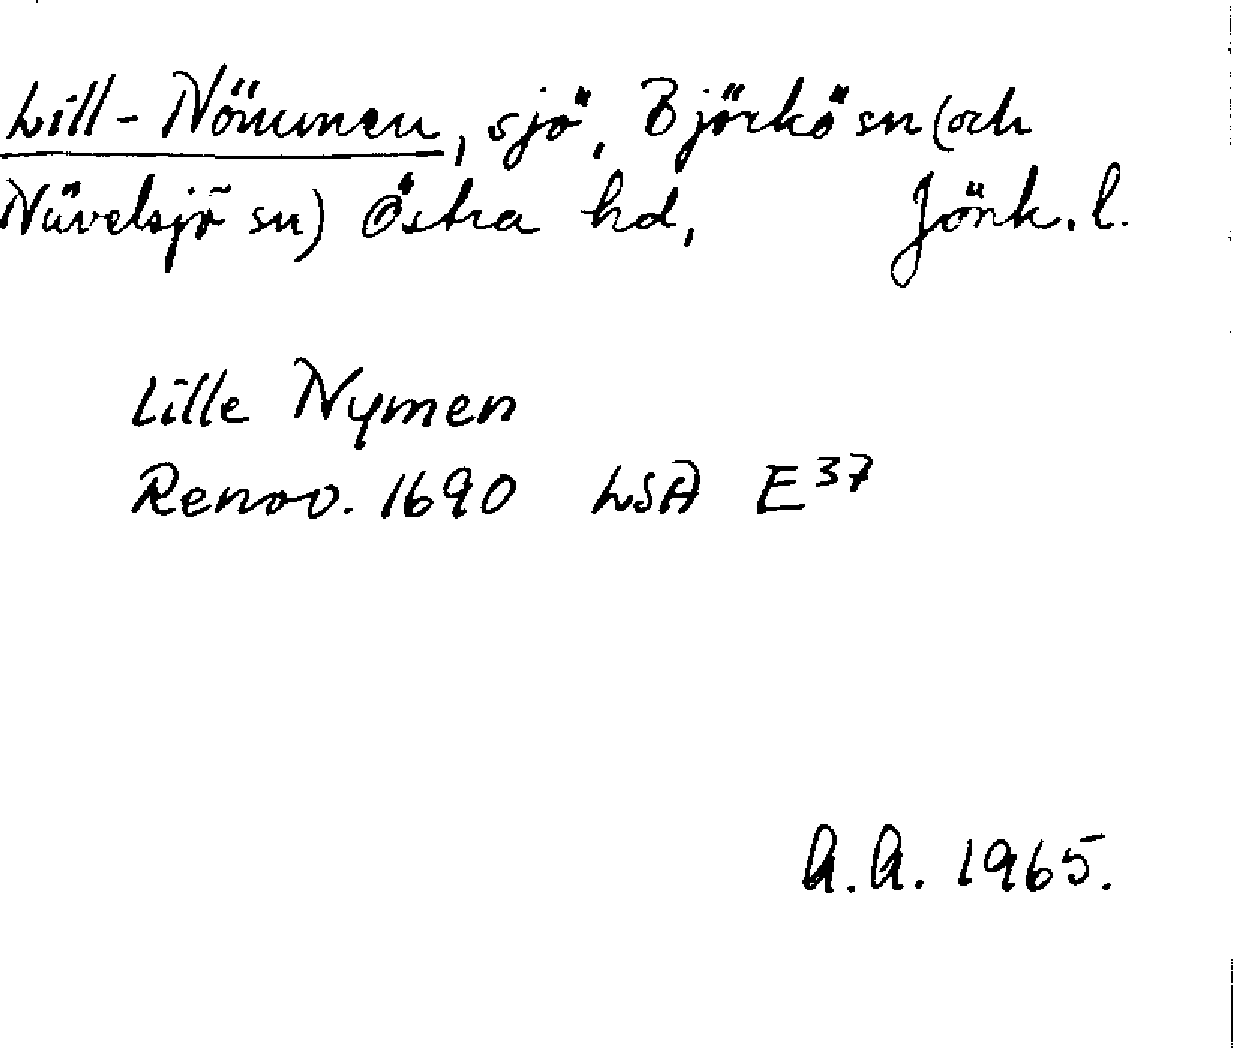 Lill-Nömmen, sjö, Björkö sn (och
Nävelsjö sn) Östra hd, Jönk. l.
Lille Nymen
Renov. 1690 LSA E37
A.A. 1965.